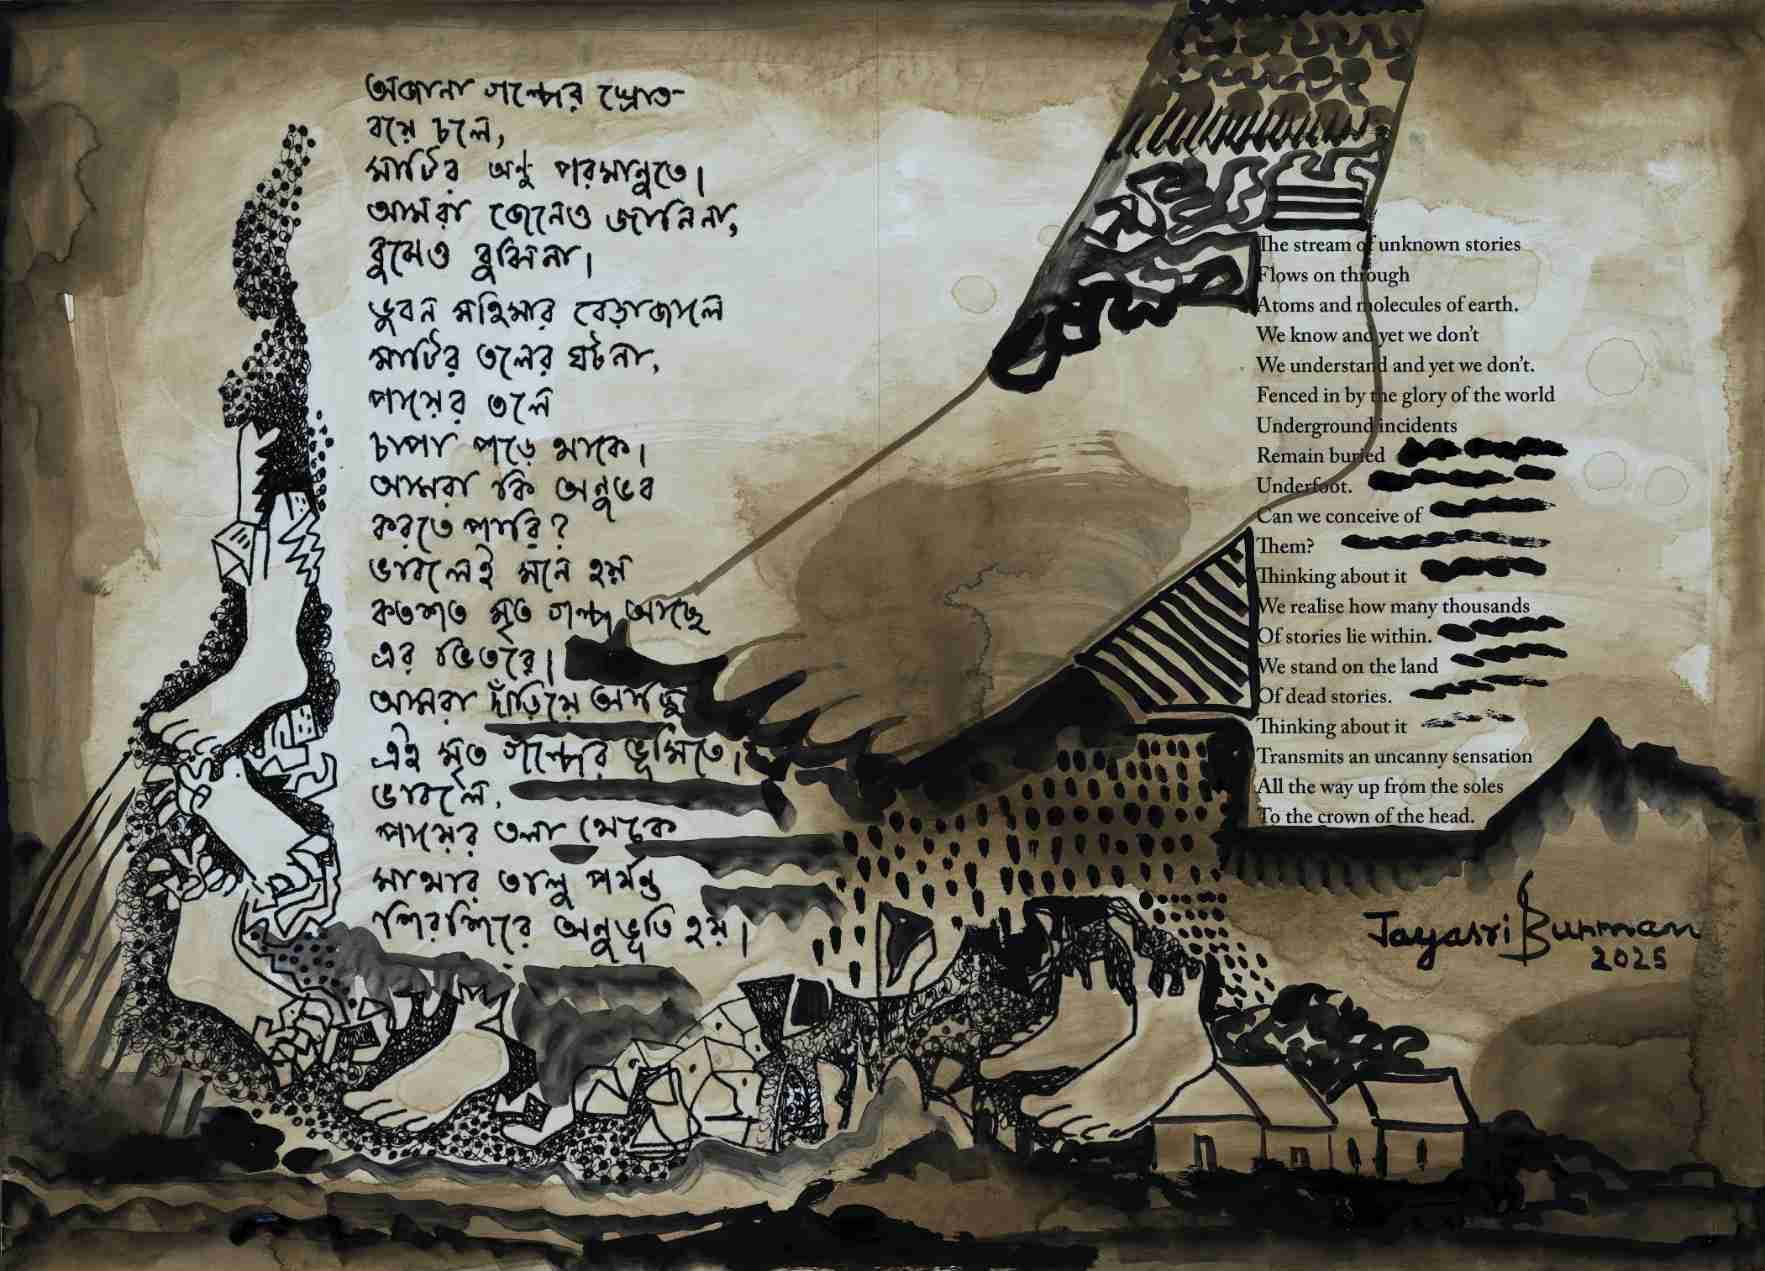 অজানা গল্পের স্রোত
বয়ে চলে,
মাটির অনু পরমানুতে।
আমরা জেনেও জানিনা,
বুঝেও বুঝিনা।
ভুবন মহিমার বেড়াজালে
মাটির তলের ঘটনা,
পায়ের তলে
চাপা পড়ে থাকে।
আমরা কি অনুভব
করতে পারি?
ভাবলেই মনে হয়
কতশত মৃত গল্প আছে
এর ভিতরে।
আমরা দাঁড়িয়ে আছি
এই মৃত গল্পের ভূমিতে।
ভাবলে,
পায়ের তলা থেকে
মাথার তালু পর্যন্ত
শিরশিরে অনুভূতি হয়।
The stream of unknown stories
Flows on through
Atoms and molecules of earth.
We know and yet we don't
We understand and yet we don't.
Fenced in by the glory of the world
Underground incidents
Remain buried
Underfoot.
Can we conceive of
Them?
Thinking about it
We realise how many thousands
Of stories lie within.
We stand on the land
Of dead stories.
Thinking about it
Transmits an uncanny sensation
All the way up from the soles
To the crown of the head.
Jayasri Burman
2025